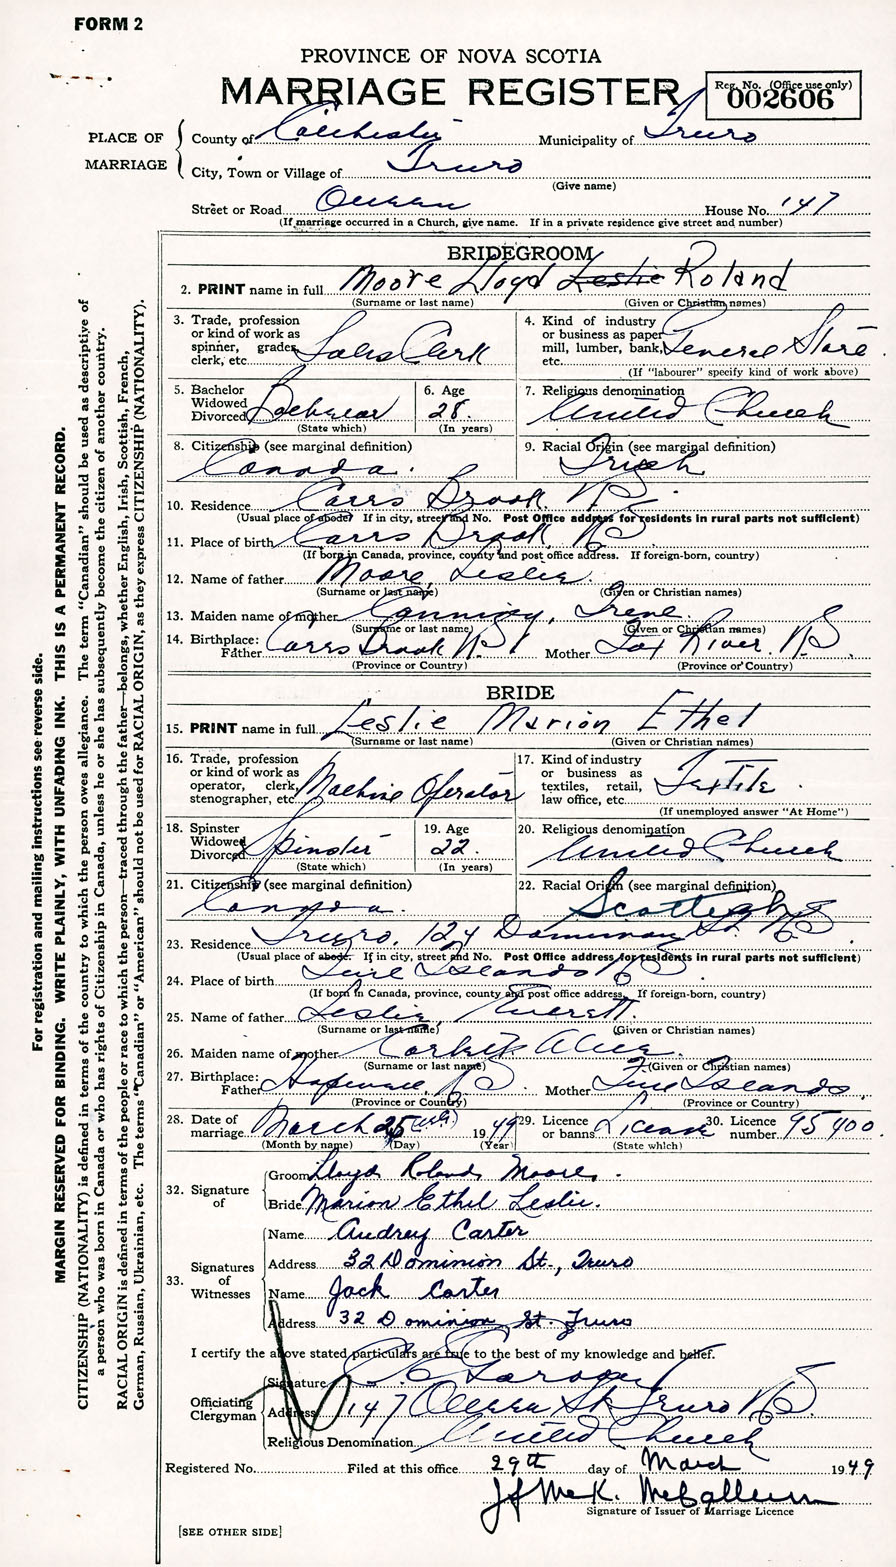 FORM 2
PROVINCE OF NOVA SCOTIA
MARRIAGE REGISTER
Reg. No. (Office use only)
002606
PLACE OF MARRIAGE
County of Colchester Municipality of Truro
City, Town or Village of Truro
(Give name)
Street or Road Queen House No. 147
(If marriage occurred in a Church, give name. If in a private residence give street and number)
BRIDEGROOM
2. PRINT name in full Moore Lloyd Leslie Roland
(Surname or last name) (Given or Christian names)
3. Trade, profession or kind of work as spinner, grader, clerk, etc. Sales Clerk
4. Kind of industry or business as paper mill, lumber, bank, etc. General Store
(If "labourer" specify kind of work above)
5. Bachelor Widowed Divorced Bachelor
(State which)
6. Age 28
(In years)
7. Religious denomination United Church
8. Citizenship (see marginal definition) Canada.
9. Racial Origin (see marginal definition) Irish
10. Residence Carrs Brook, NS
(Usual place of abode? If in city, street and No. Post Office address for residents in rural parts not sufficient)
11. Place of birth Carrs Brook, NS
(If born in Canada, province, county and post office address. If foreign-born, country)
12. Name of father Moore, Leslie.
(Surname or last name) (Given or Christian names)
13. Maiden name of mother Irene.
(Surname or last name) (Given or Christian names)
14. Birthplace: Father Carrs Brook NS Mother Fox River. NS
(Province or Country) (Province or Country)
BRIDE
15. PRINT name in full Leslie Marion Ethel
(Surname or last name) (Given or Christian names)
16. Trade, profession or kind of work as operator, clerk, stenographer, etc. Machine Operator
17. Kind of industry or business as textiles, retail, law office, etc. Textile
(If unemployed answer "At Home")
18. Spinster Widowed Divorced Spinster
(State which)
19. Age 22.
(In years)
20. Religious denomination United Church
21. Citizenship (see marginal definition) Canada.
22. Racial Origin (see marginal definition) Scottish
23. Residence Truro, 124 St. NS
(Usual place of abode. If in city, street and No. Post Office address for residents in rural parts not sufficient)
24. Place of birth Five Islands NS
(If born in Canada, province, county and post office address. If foreign-born, country)
25. Name of father Leslie, Everett.
(Surname or last name) (Given or Christian names)
26. Maiden name of mother Corbett Alice.
(Surname or last name) (Given or Christian names)
27. Birthplace: Father NS Mother Five Islands.
(Province or Country) (Province or Country)
28. Date of marriage March 25 1949
(Month by name) (Day) (Year)
29. Licence or banns License
(State which)
30. Licence number 95400.
32. Signature of
Groom Lloyd Roland Moore.
Bride Marion Ethel Leslie.
33. Signatures of Witnesses
Name Audrey Carter
Address 32 Dominion St., Truro
Name Jack Carter
Address 32 Dominion St. Truro
I certify the above stated particulars are true to the best of my knowledge and belief.
Officiating Clergyman
Signature
Address 147 Queen St Truro NS.
Religious Denomination United Church
Registered No. Filed at this office 29th day of March 1949
McCallum
Signature of Issuer of Marriage Licence
[SEE OTHER SIDE]
For registration and mailing instructions see reverse side.
MARGIN RESERVED FOR BINDING. WRITE PLAINLY, WITH UNFADING INK. THIS IS A PERMANENT RECORD.
CITIZENSHIP (NATIONALITY) is defined in terms of the country to which the person owes allegiance. The term "Canadian" should be used as descriptive of
a person who was born in Canada or who has rights of Citizenship in Canada, unless he or she has subsequently become the citizen of another country.
RACIAL ORIGIN is defined in terms of the people or race to which the person—traced through the father—belongs, whether English, Irish, Scottish, French,
German, Russian, Ukrainian, etc. The terms "Canadian" or "American" should not be used for RACIAL ORIGIN, as they express CITIZENSHIP (NATIONALITY).